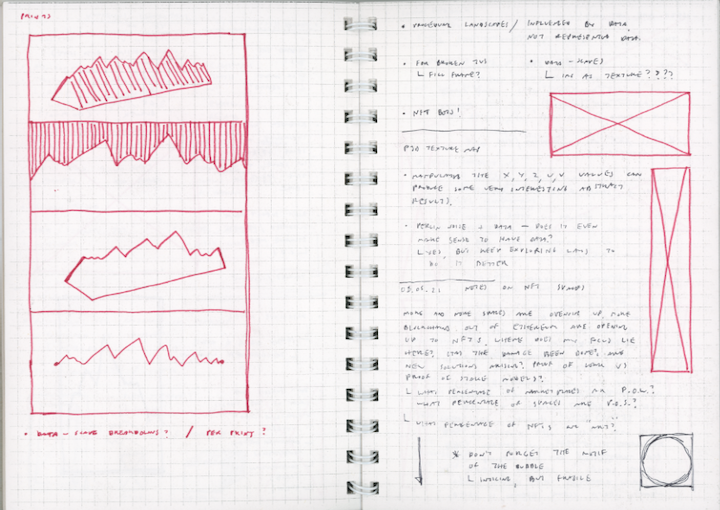 PRINTS
• DATA - FLAVE BREAKDOWNS? / PER PRINT?
• PROCEDURAL LANDSCAPES / INFLUENCED BY DATA
NOT REPRESENTING DATA.
• FOR BROKEN
FILL FRAME?
• DATA -
AS TEXTURE????
• NOT BOSS!
P3D TEXTURE MAP
• MANIPULATING THE X, Y, Z, U, V VALUES CAN
PRODUCE SOME VERY INTERESTING ABSTRACT
RESULTS.
• PERLIN NOISE + DATA - DOES IT EVEN
MAKE SENSE TO HAVE DATA?
YES, BUT KEEP EXPLORING WAYS TO
DO IT BETTER
05.05.21 NOTES ON NFT SPACES
MORE AND MORE SPACES ARE OPENING UP, MORE
BLOCKCHAINS OUT OF ETHEREUM ARE OPENING
UP TO NFTS. WHERE DOES MY FOCUS LIE
HERE? HAS THE DAMAGE BEEN DONE? ARE
NEW SOLUTIONS ARISING? PROOF OF WORK VS
PROOF OF STAKE MODELS?
WHAT PERCENTAGE OF MARKETPLACES ARE P.O.W.?
WHAT PERCENTAGE OF SPACES ARE P.O.S.?
WHAT PERCENTAGE OF NFTS ARE ART?
* DON'T FORGET THE MOTIF
OF THE BUBBLE
BUT FRAGILE